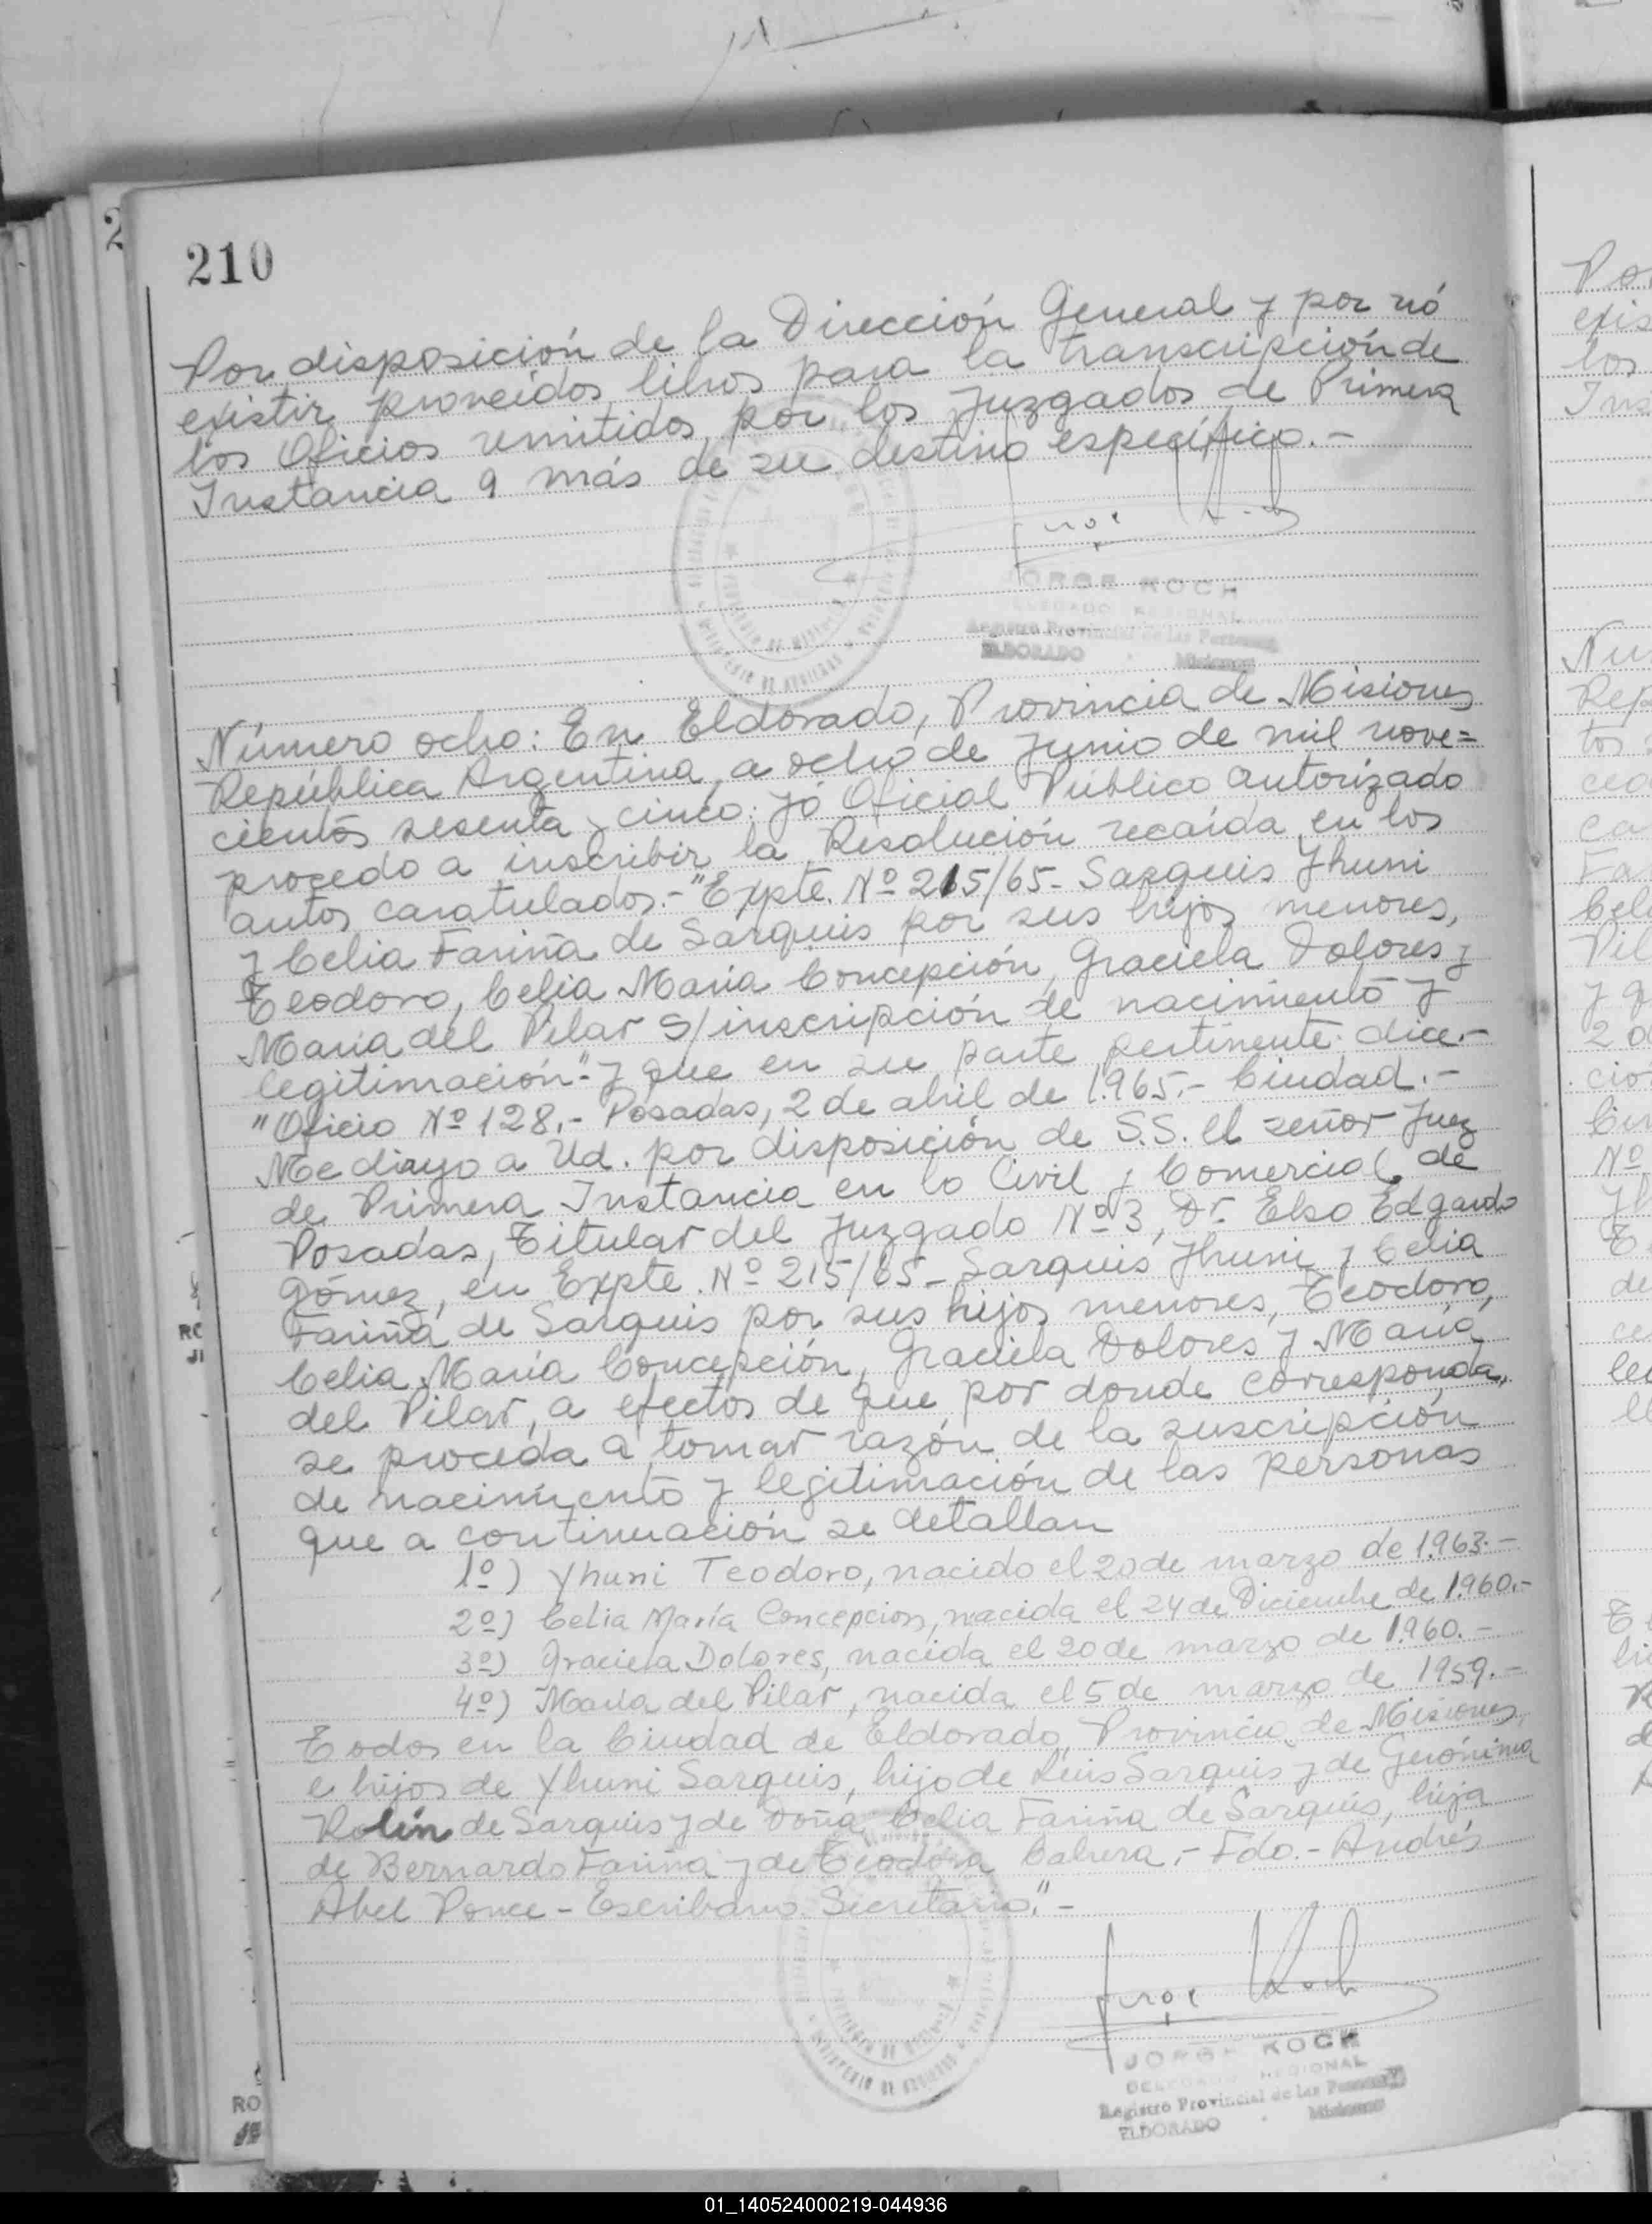 210
Por disposición de la Dirección General y por nó
existir proveídos libros para la transcripción de
los Oficios remitidos por los Juzgados de Primera
Instancia a más de su destino específico.-
JORGE KOCH
DELEGADO REGIONAL
Registro Provincial de las Personas
ELDORADO - Misiones
Número ocho: En Eldorado, Provincia de Misiones
República Argentina, a ocho de Junio de mil nove=
cientos sesenta y cinco: yó Oficial Público autorizado
procedo a inscribir la Resolución recaída en los
autos caratulados.- "Expte. Nº 215/65- Sarquis Yhuni
y Celia Fariña de Sarquis por sus hijos menores,
Teodoro, Celia María Concepción, Graciela Dolores y
María del Pilar S/inscripción de nacimiento y
legitimación"- y que en su parte pertinente dice.-
"Oficio Nº 128.- Posadas, 2 de abril de 1.965.- Ciudad.-
Me dirijo a Ud. por disposición de S.S. el señor Juez
de Primera Instancia en lo Civil y Comercial de
Posadas, Titular del Juzgado Nº 3, Dr. Elso Edgardo
Gómez, en Expte. Nº 215/65- Sarquis Yhuni y Celia
Fariña de Sarquis por sus hijos menores, Teodoro,
Celia María Concepción, Graciela Dolores y María
del Pilar, a efectos de que por donde corresponda,
se proceda a tomar razón de la suscripción
de nacimiento y legitimación de las personas
que a continuación se detallan
1º) Yhuni Teodoro, nacido el 20 de marzo de 1.963.-
2º) Celia María Concepcion, nacida el 24 de Diciembre de 1.960.-
3º) Graciela Dolores, nacida el 20 de marzo de 1.960.-
4º) María del Pilar, nacida el 5 de marzo de 1959.-
Todos en la Ciudad de Eldorado, Provincia de Misiones,
e hijos de Yhuni Sarquis, hijo de Luis Sarquis y de Gerónima
Rolín de Sarquis y de Doña Celia Fariña de Sarquis, hija
de Bernardo Fariña y de Teodora Cabrera.- Fdo.- Andrés
Abel Ponce - Escribano Secretario."-
Jorge Koch
JORGE KOCH
DELEGADO REGIONAL
Registro Provincial de las Personas
ELDORADO - Misiones
01_140524000219-044936